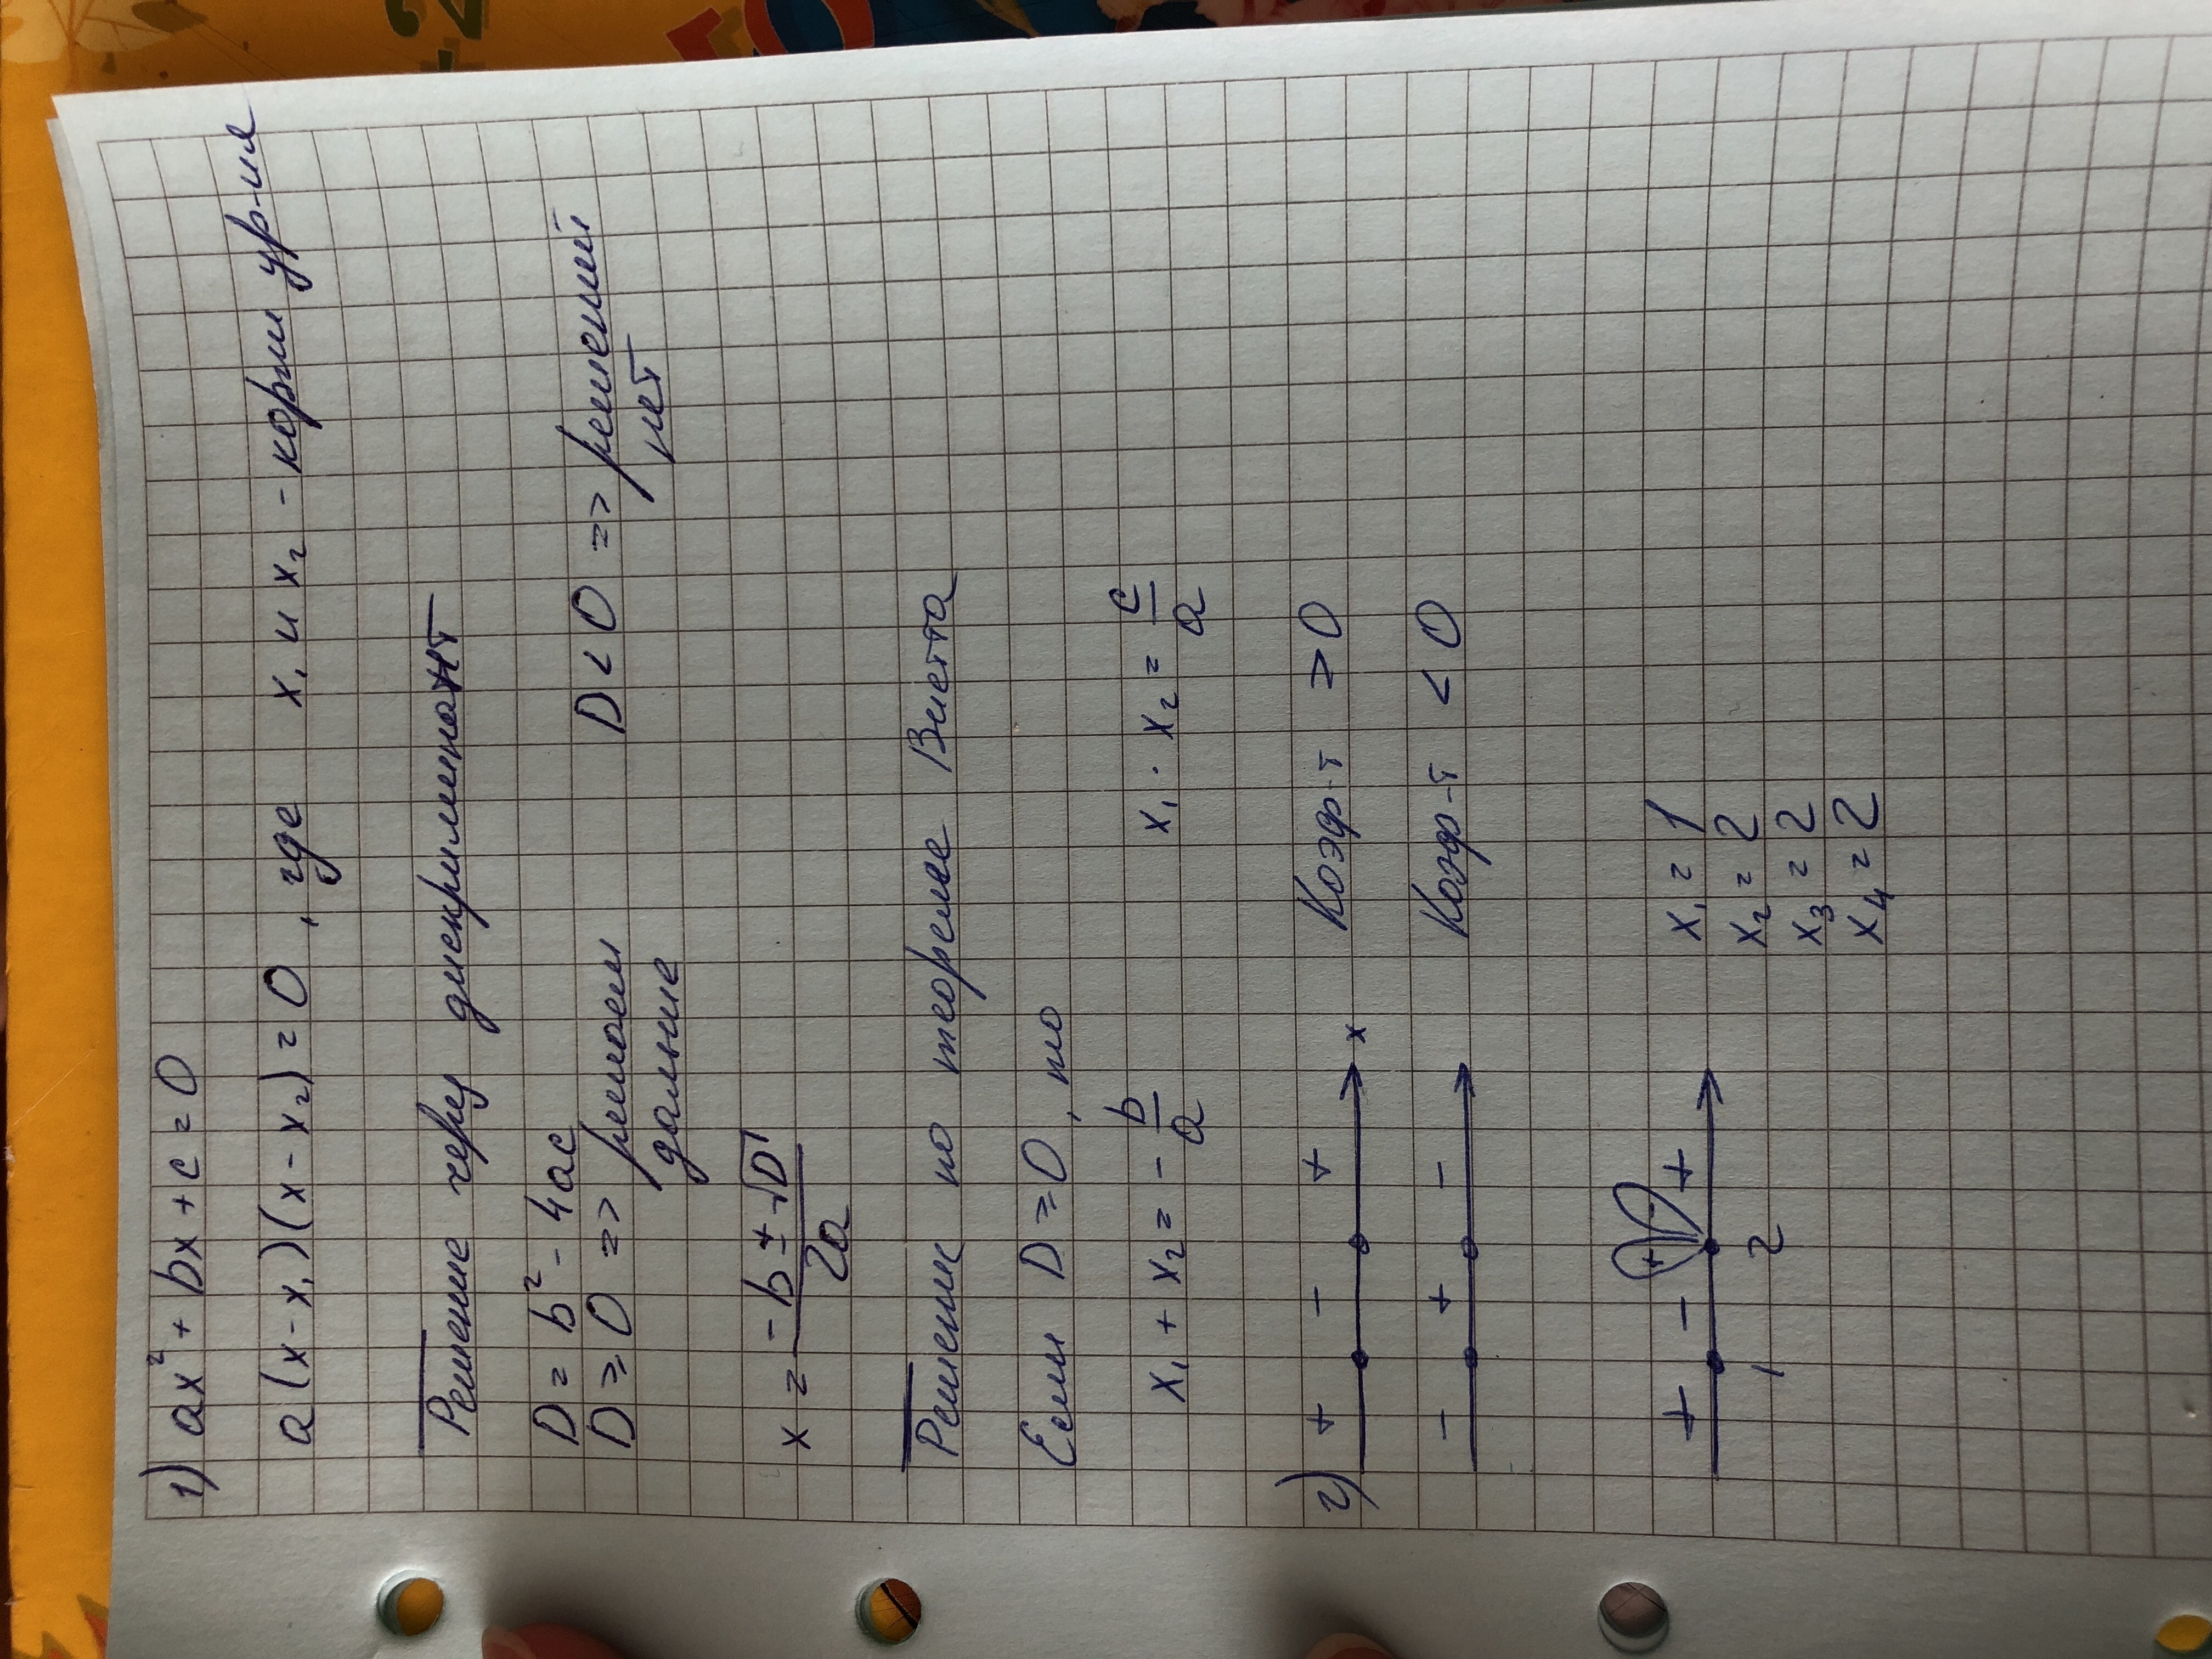 1) ax² + bx + c = 0
a(x - x₁)(x - x₂) = 0, где x₁ и x₂ - корни ур-ия
Решение через дискриминант
D = b² - 4ac
D ≥ 0 => решаем дальше
D < 0 => решений нет
x = (-b ± √D) / 2a
Решение по теореме Виета
Если D ≥ 0, то
x₁ + x₂ = - b/a
x₁ · x₂ = c/a
2) + - + x Коэф-т > 0
- + - Коэф-т < 0
+
+ - - +
1 2
x₁ = 1
x₂ = 2
x₃ = 2
x₄ = 2